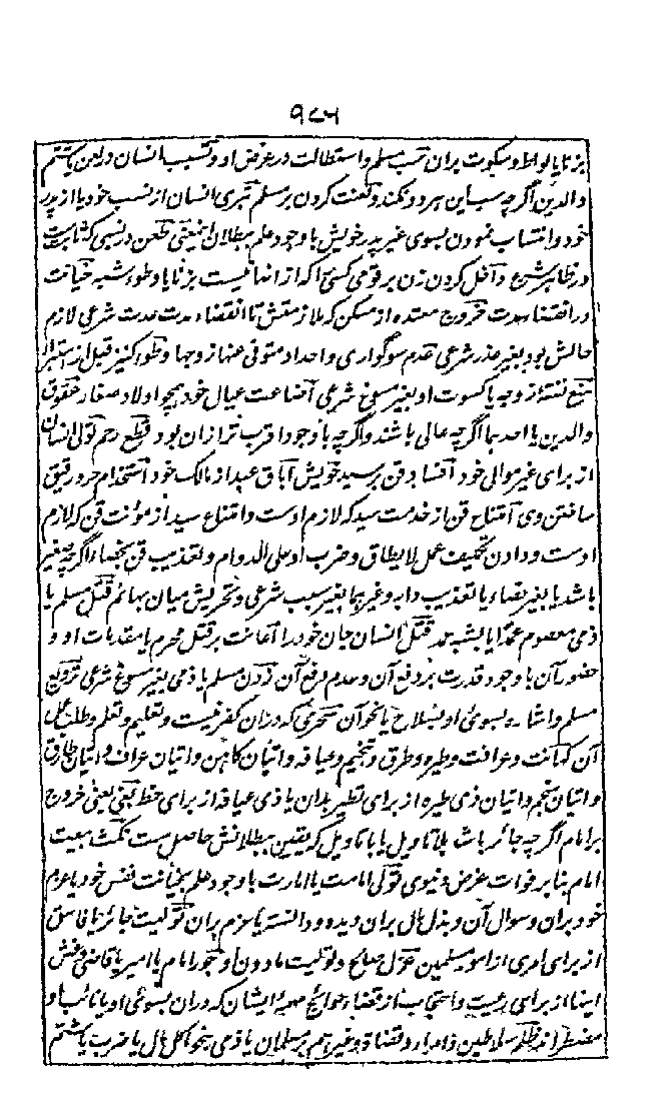 ۹۷۶
بزنا یا لواط و سکوت بران سب مسلم و استطالت در عرض او و تسبب انسان در لعن یا شتم
والدین اگرچه سب این هر دو نکند و لعنت کردن بر مسلم تبری انسان از نسب خود یا از پدر
خود و انتساب نمودن بسوی غیر پدر خویش با وجود علم ببطلان آن یعنی طعن در نسبی که ثابت ست
در ظاهر شرع داخل کردن زن بر قومی کسی را که از انها نیست بزنا یا وطی شبه خیانت
در انقضاء عدت خروج معتده از مسکن که ملازمتش تا انقضاء مدت عدت شرعی لازم
حالش بود بغیر عذر شرعی عدم سوگواری و احداد متوفی عنها زوجها وطی کنیز قبل از استبرا
منع نفقه زوجه یا کسوت او بغیر مسوغ شرعی اضاعت عیال خود همچو اولاد صغار عقوق
والدین یا احدهما اگرچه عالی باشند و اگرچه با وجود اقرب تر ازان بود قطع رحم تولی انسان
از برای غیر موالی خود افساد قن بر سید خویش اباق عبد از مالک خود استخدام حر و رقیق
ساختن وی امتناع قن از خدمت سید که لازم اوست و امتناع سید از مؤنت قن که لازم
اوست و دادن تکلیف عمل لا یطاق و ضرب او علی الدوام و تعذیب قن بخصاء اگرچه صغیر
باشد یا بغیر خصاء یا تعذیب دابه و غیرها بغیر سبب شرعی و تحریش میان بهائم قتل مسلم یا
ذمی معصوم عمدا یا بشبه عمد قتل انسان جان خود را اعانت بر قتل محرم یا مقدمات او و
حضور آن با وجود قدرت بر دفع آن و عدم دفع آن زدن مسلم یا ذمی بغیر مسوغ شرعی ترویع
مسلم و اشاره بسوی او بسلاح یا نحو آن سحری که دران کفر نیست و تعلیم و تعلم و طلب عمل
آن کهانت و عرافت و طیره و طرق و تنجیم و عیافه و اتیان کاهن و اتیان عراف و اتیان طارق
و اتیان منجم و اتیان ذی طیره از برای تطیر بدان یا ذی عیافه از برای خط بغی یعنی خروج
بر امام اگرچه جائر باشد بلا تاویل یا با تاویل که یقین ببطلانش حاصل ست نکث بیعت
امام بنا بر فوات غرض دنیوی تولی امامت یا امارت با وجود علم بخیانت نفس خود یا عزم
خود بران و سوال آن و بذل مال بران دیده و دانسته یا عزم بران تولیت جائر یا فاسق
از برای امری از امور مسلمین عزل صالح و تولیت مادون او جور امام یا امیر یا قاضی و غش
اینها از برای رعیت و احتجاب از قضاء حوائج مهمه ایشان که دران بسوی او یا نائب او
مضطراند ظلم سلاطین و امراء و قضاة و غیرهم بر مسلمان یا ذمی بنحو اکل مال یا ضرب یا شتم